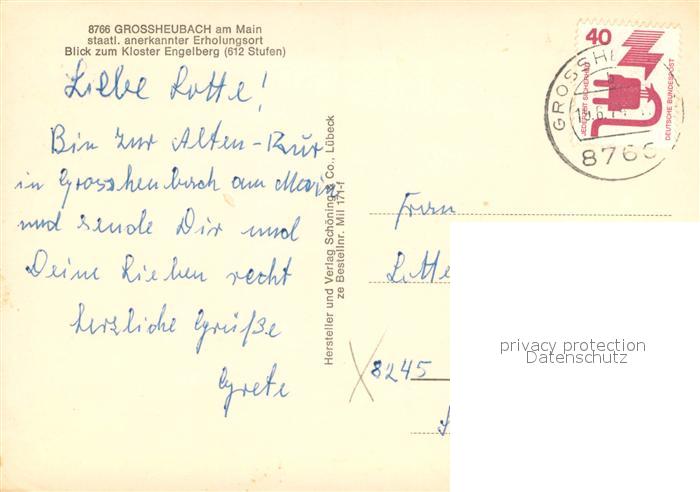 8766 GROSSHEUBACH am Main
staatl. anerkannter Erholungsort
Blick zum Kloster Engelberg (612 Stufen)
Liebe Lotte!
Bin zur Alten-Kur
in Grossheubach am Main
und sende Dir und
Deine Lieben recht
herzliche Grüße
Grete
Hersteller und Verlag Schöning & Co., Lübeck
ze Bestellnr. Mil 171-f
40
JEDERZEIT SICHERHEIT
DEUTSCHE BUNDESPOST
8766
Frau
Lotte
8245
privacy protection
Datenschutz